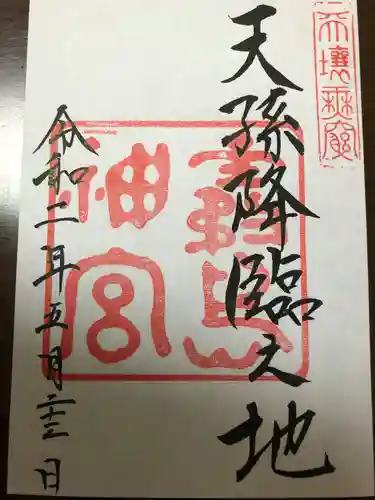 天壤無窮
天孫降臨之地
霧島
神宮
令和二年五月二十三日